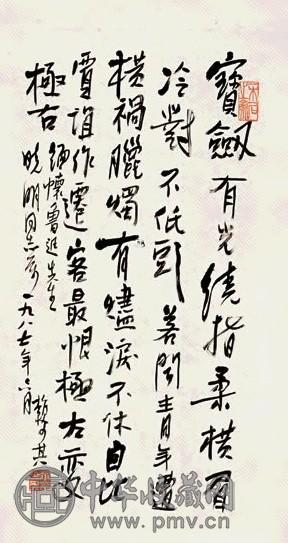 寶劍有光繞指柔橫眉
冷對不低頭善聞青年遭
橫禍臘燭有燼淚不休自比
賈誼作遷客最恨極左變
極右緬懷魯迅先生
曉明同志屬 一九八七年六月
中华收藏网
www.pmv.cn